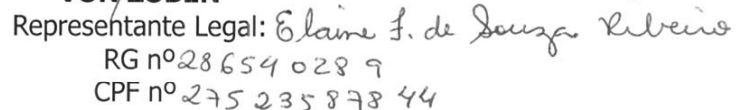 Representante Legal: Elaine F. de Souza Ribeiro
RG nº 28 654 028 9
CPF nº 275 235 878 44